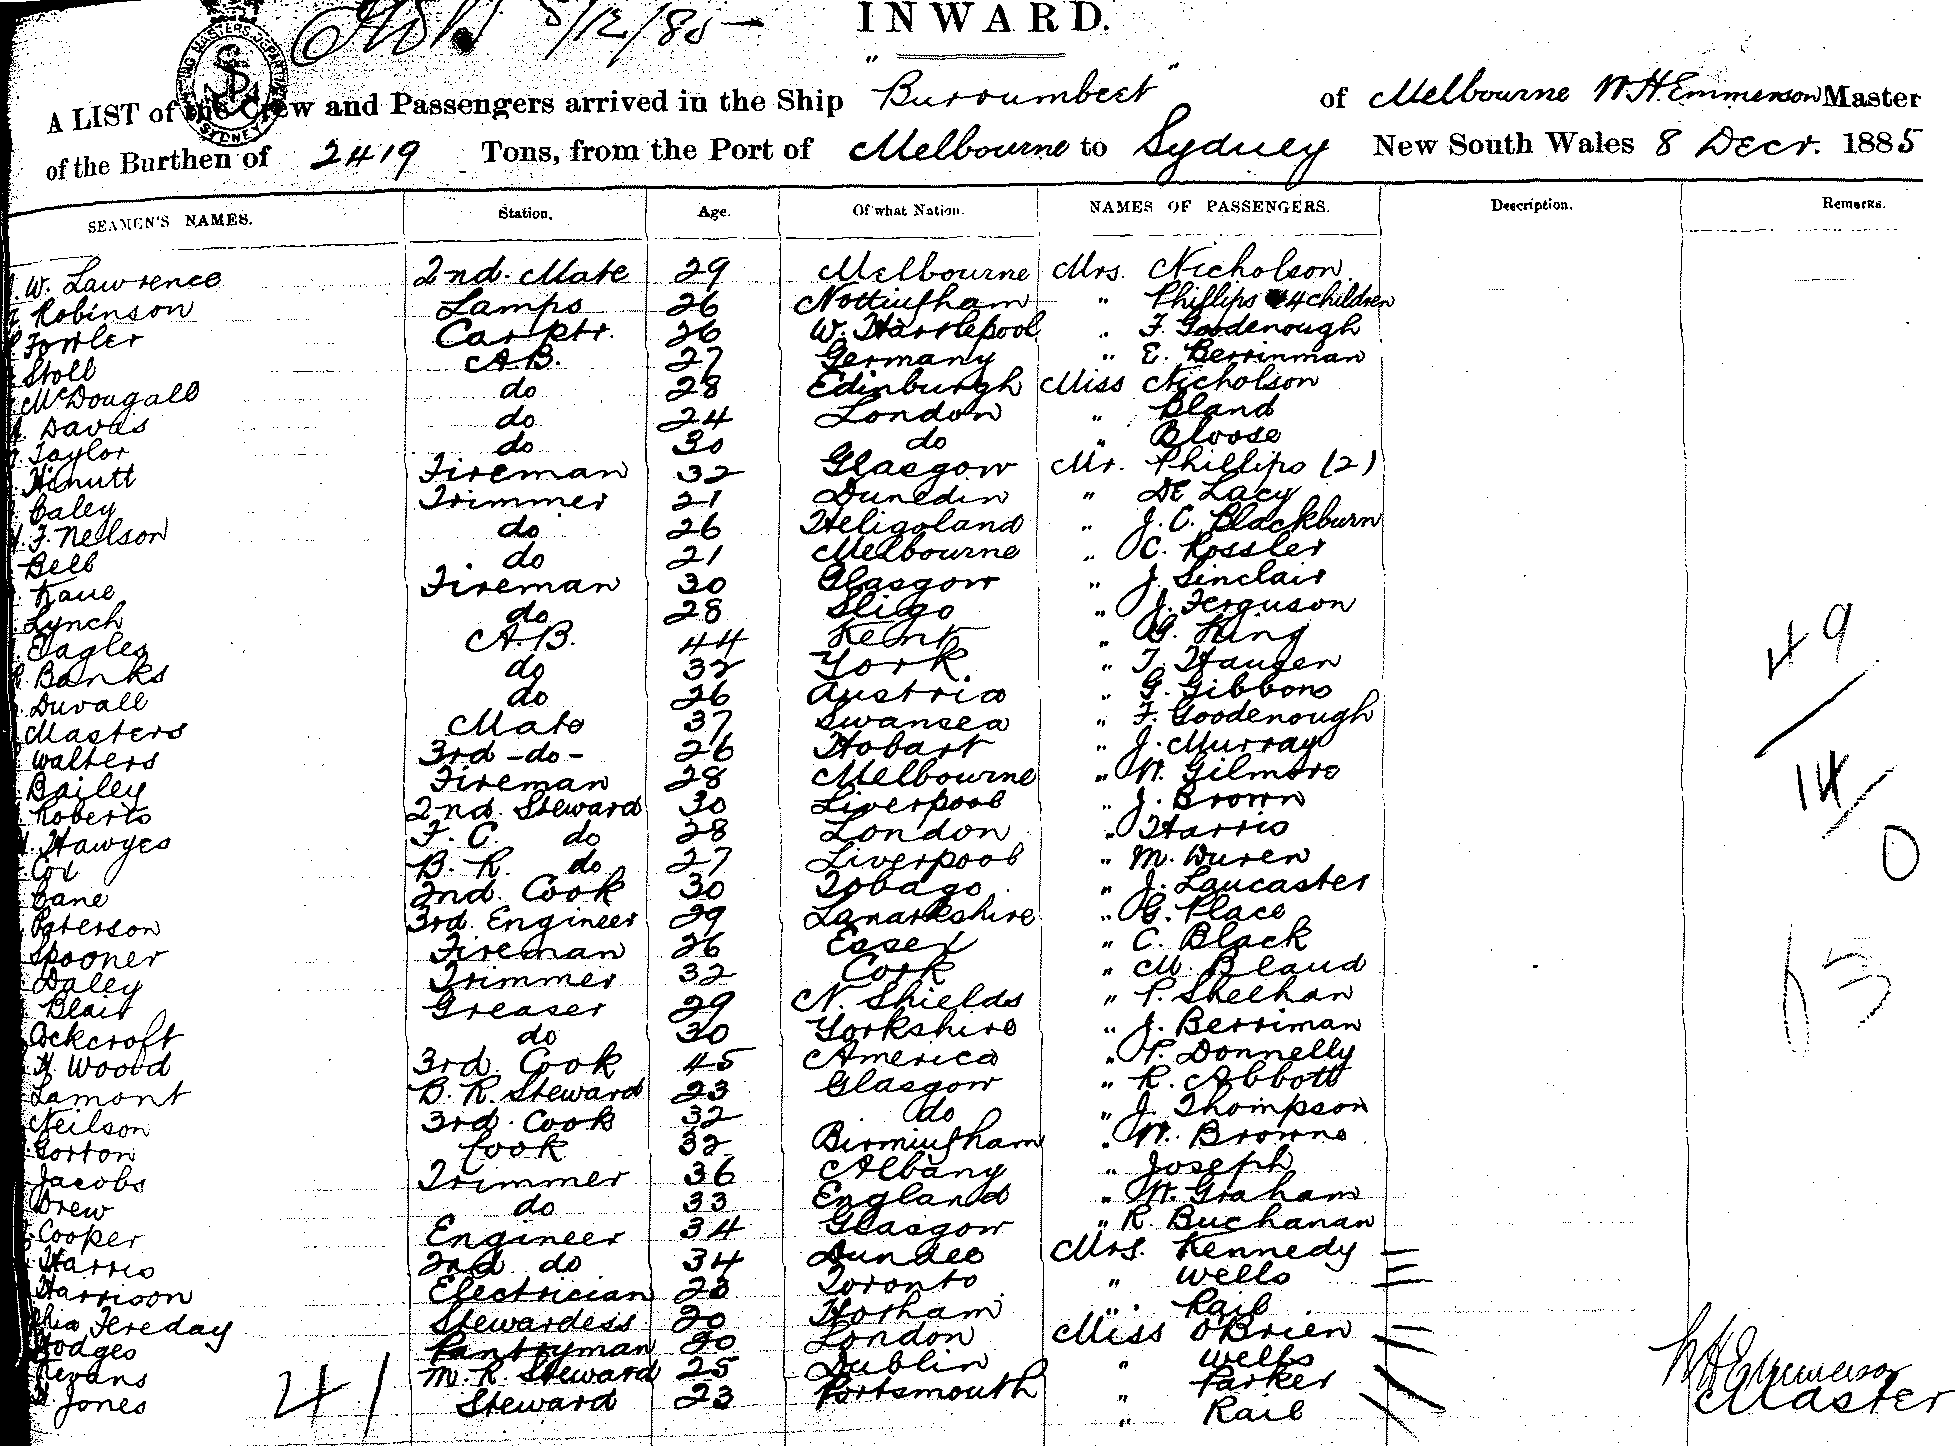 5/12/85
INWARD.
A LIST of the Crew and Passengers arrived in the Ship "Burrumbeet" of Melbourne W H Emmerson Master
of the Burthen of 2419 Tons, from the Port of Melbourne to Sydney New South Wales 8 Decr. 1885
SEAMEN'S NAMES. Station. Age. Of what Nation. NAMES OF PASSENGERS. Description. Remarks.
W. Lawrence 2nd. Mate 29 Melbourne Mrs. Nicholson
Robinson Lamps 26 Nottingham " Phillips 4 children
Fowler Carptr. 26 W. Hartlepool " F. Goodenough
Stoll A.B. 27 Germany " E. Berrinman
McDougall do 28 Edinburgh Miss Nicholson
Davis do 24 London " Bland
Taylor do 30 do " Bloose
Hinutt Fireman 32 Glasgow Mr. Phillips (2)
Caley Trimmer 21 Dunedin " De Lacy
F. Neilson do 26 Heligoland " J. C. Blackburn
Bell do 21 Melbourne " C. Rossler
Kane Fireman 30 Glasgow " J. Sinclair
Lynch do 28 Sligo " J. Ferguson
Eagles A.B. 44 Kent " G. King
Banks do 32 York " T. Haugen
Duvall do 26 Austria " G. Gibbons
Masters Mate 37 Swansea " F. Goodenough
Walters 3rd -do- 26 Hobart " J. Murray
Bailey Fireman 28 Melbourne " W. Gilmore
Roberts 2nd. Steward 30 Liverpool " J. Brown
Hawyes F. C. do 28 London " Harris
Cox B. R. do 27 Liverpool " M. Wuren
Cane 2nd. Cook 30 Tobago " J. Lancaster
Paterson 3rd. Engineer 29 Lanarkshire " G. Place
Spooner Fireman 26 Essex " C. Black
Daley Trimmer 32 Cork " M. Bland
Blair Greaser 29 N. Shields " P. Sheehan
Ackcroft do 30 Yorkshire " J. Berriman
H. Wood 3rd. Cook 45 America " P. Donnelly
Lamont B. R. Steward 23 Glasgow " R. Abbott
Neilson 3rd. Cook 32 do " J. Thompson
Gorton Cook 32 Birmingham " W. Browne
Jacobs Trimmer 36 Albany " Joseph
Drew do 33 England " W. Graham
Cooper Engineer 34 Glasgow " R. Buchanan
Harris 2nd do 34 Dundee Mrs. Kennedy
Harrison Electrician 23 Toronto " Wells
Fereday Stewardess 20 Horham " Rail
Hodges Pantryman 20 London Miss O'Brien
Bevans M. R. Steward 25 Dublin " Wells
Jones Steward 23 Portsmouth " Parker
" Rail
41
49
14
0
63
W H Emmerson
Master